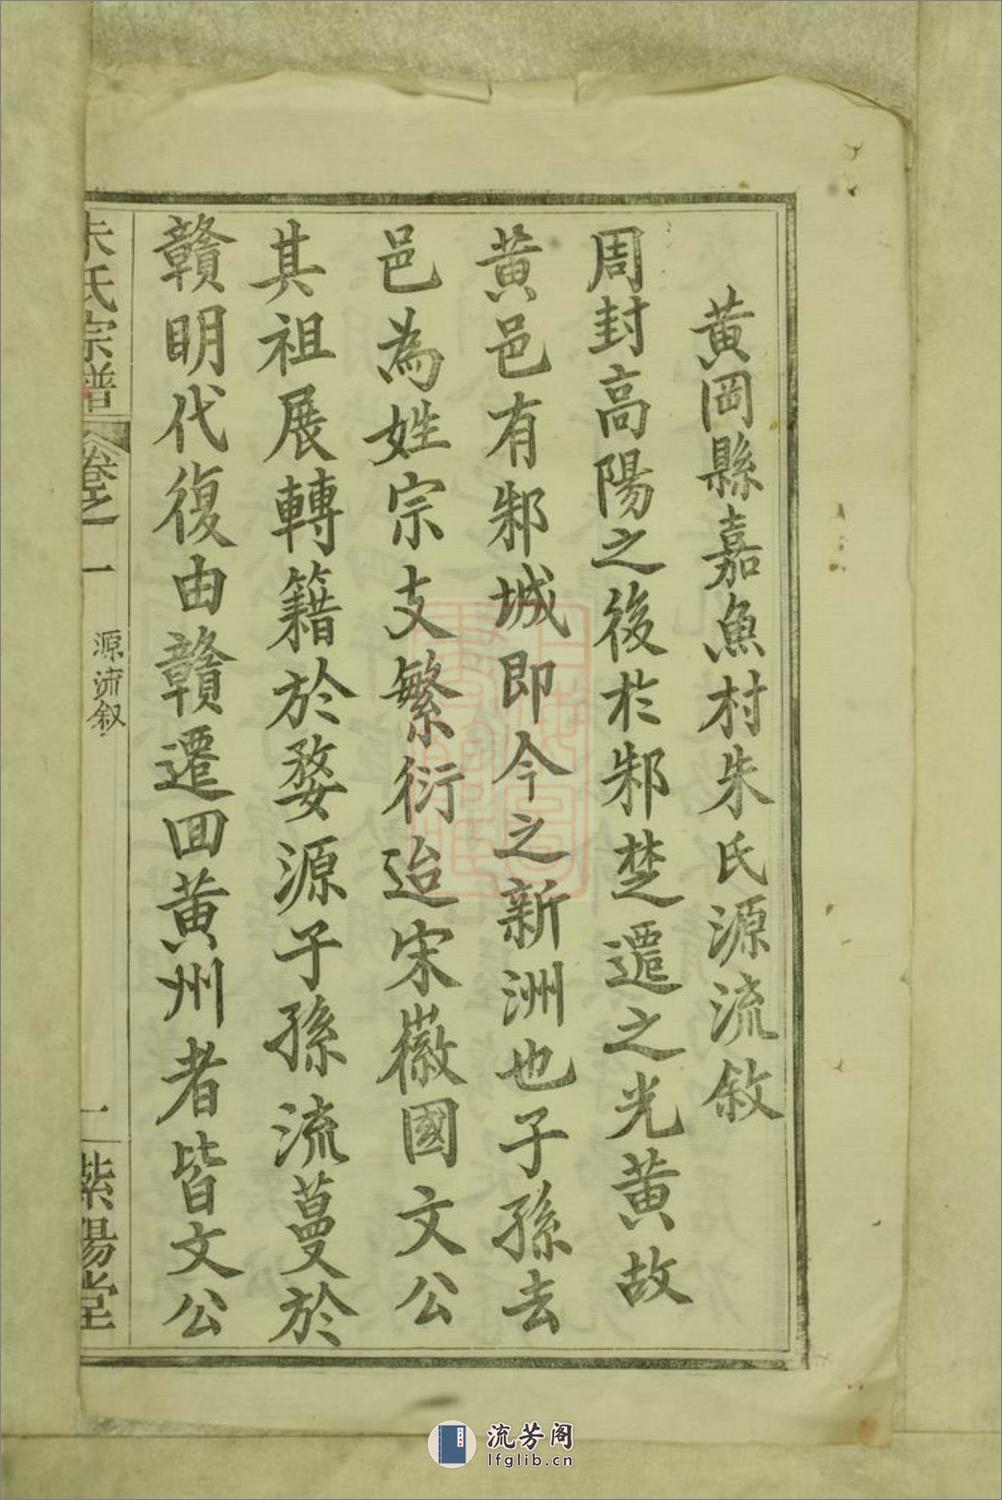 黄岡縣嘉魚村朱氏源流敘
周封高陽之後於邾楚遷之光黄故
黄邑有邾城即今之新洲也子孫去
邑為姓宗支繁衍迨宋徽國文公
其祖展轉籍於婺源子孫流蔓於
贛明代復由贛遷回黄州者皆文公
朱氏宗譜
卷之一
源流叙
二
紫陽堂
流芳阁
lfglib.cn